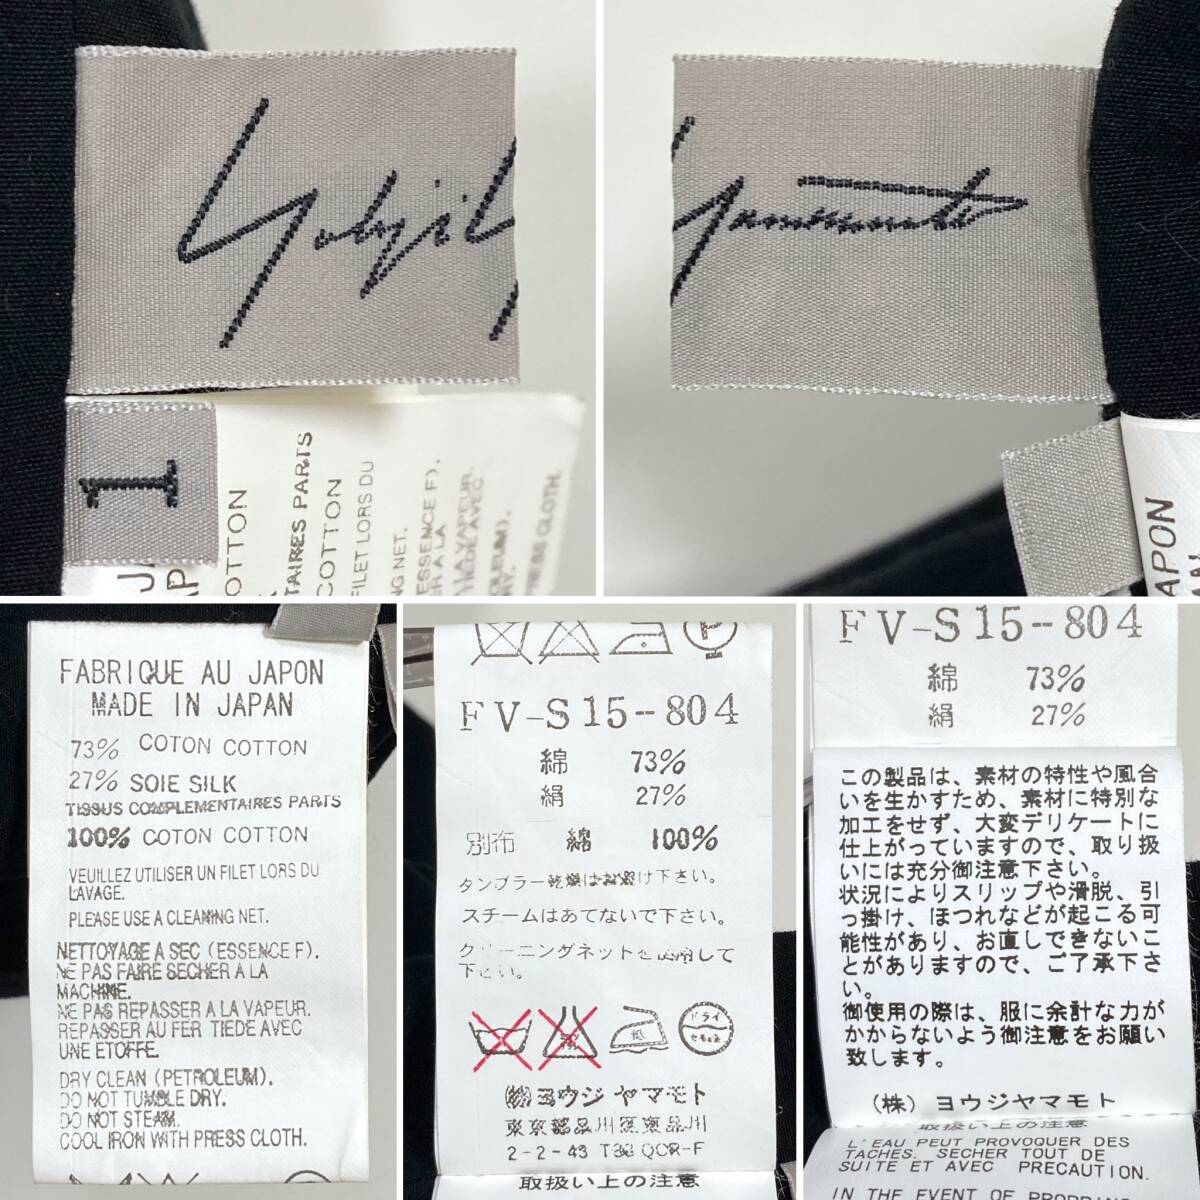 Yohji Y
Yamamoto
1
COTTON
TAIRES PARTS
COTTON
FILET LORS DU
NG NET.
ESSENCE F).
ER A LA
LA VAPEUR.
TIEDE AVEC
OLEUM).
RY.
PRESS CLOTH.
APON
FABRIQUE AU JAPON
MADE IN JAPAN
73% COTON COTTON
27% SOIE SILK
TISSUS COMPLEMENTAIRES PARTS
100% COTON COTTON
VEUILLEZ UTILISER UN FILET LORS DU
LAVAGE.
PLEASE USE A CLEANING NET.
NETTOYAGE A SEC (ESSENCE F).
NE PAS FAIRE SECHER A LA
MACHINE.
NE PAS REPASSER A LA VAPEUR.
REPASSER AU FER TIEDE AVEC
UNE ETOFFE.
DRY CLEAN (PETROLEUM).
DO NOT TUMBLE DRY.
DO NOT STEAM.
COOL IRON WITH PRESS CLOTH.
P
FV-S15-804
綿 73%
絹 27%
別布 綿 100%
タンブラー乾燥はお避け下さい。
スチームはあてないで下さい。
クリーニングネットを使用して
下さい。
低
ドライ
セキユ系
(株)ヨウジヤマモト
東京都品川区東品川
2-2-43 T33 QCR-F
取扱い上の注意
FV-S15-804
綿 73%
絹 27%
この製品は、素材の特性や風合
いを生かすため、素材に特別な
加工をせず、大変デリケートに
仕上がっていますので、取り扱
いには充分御注意下さい。
状況によりスリップや滑脱、引
っ掛け、ほつれなどが起こる可
能性があり、お直しできないこ
とがありますので、ご了承下さ
い。
御使用の際は、服に余計な力が
かからないよう御注意をお願い
致します。
(株)ヨウジヤマモト
取扱い上の注意
L'EAU PEUT PROVOQUER DES
TACHES. SECHER TOUT DE
SUITE ET AVEC PRECAUTION.
IN THE EVENT OF